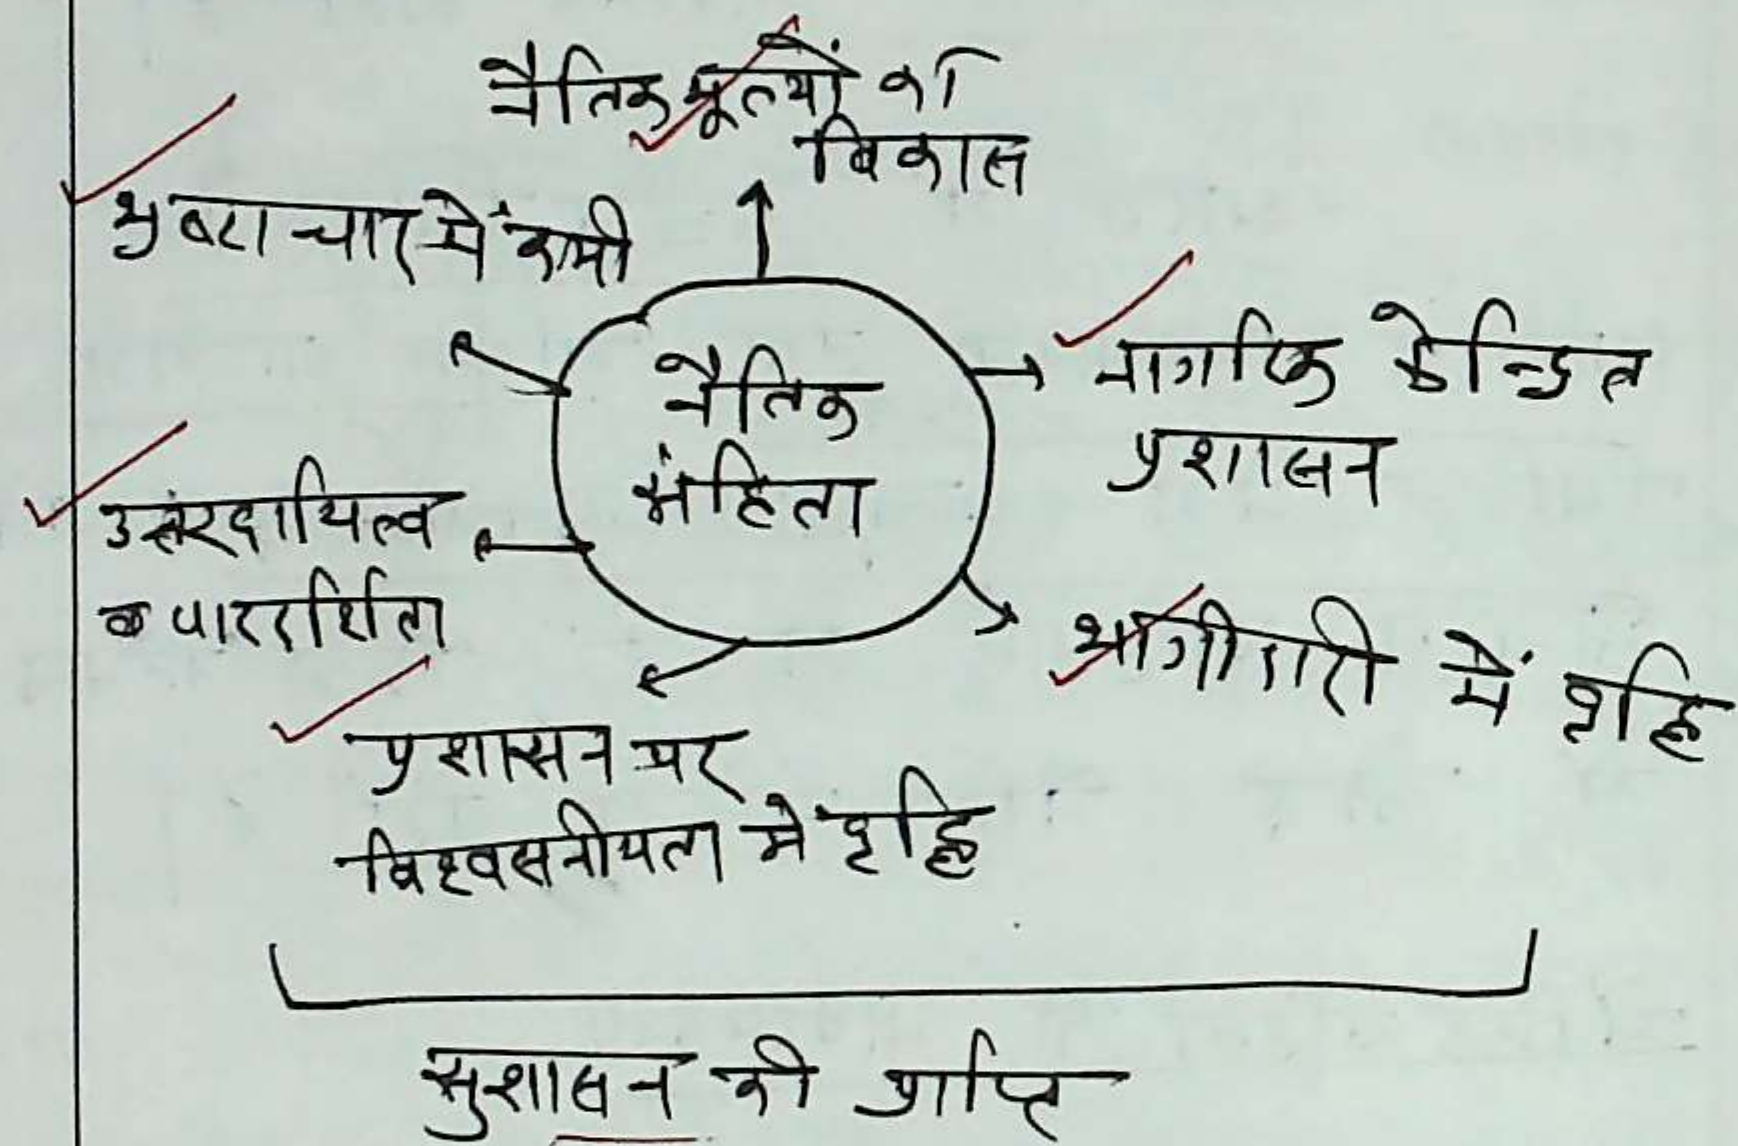 नैतिक मूल्यों का
विकास
भ्रष्टाचार में कमी
नैतिक
संहिता
नागरिक केन्द्रित
प्रशासन
उत्तरदायित्व
व पारदर्शिता
भागीदारी में वृद्धि
प्रशासन पर
विश्वसनीयता में वृद्धि
सुशासन की प्राप्ति